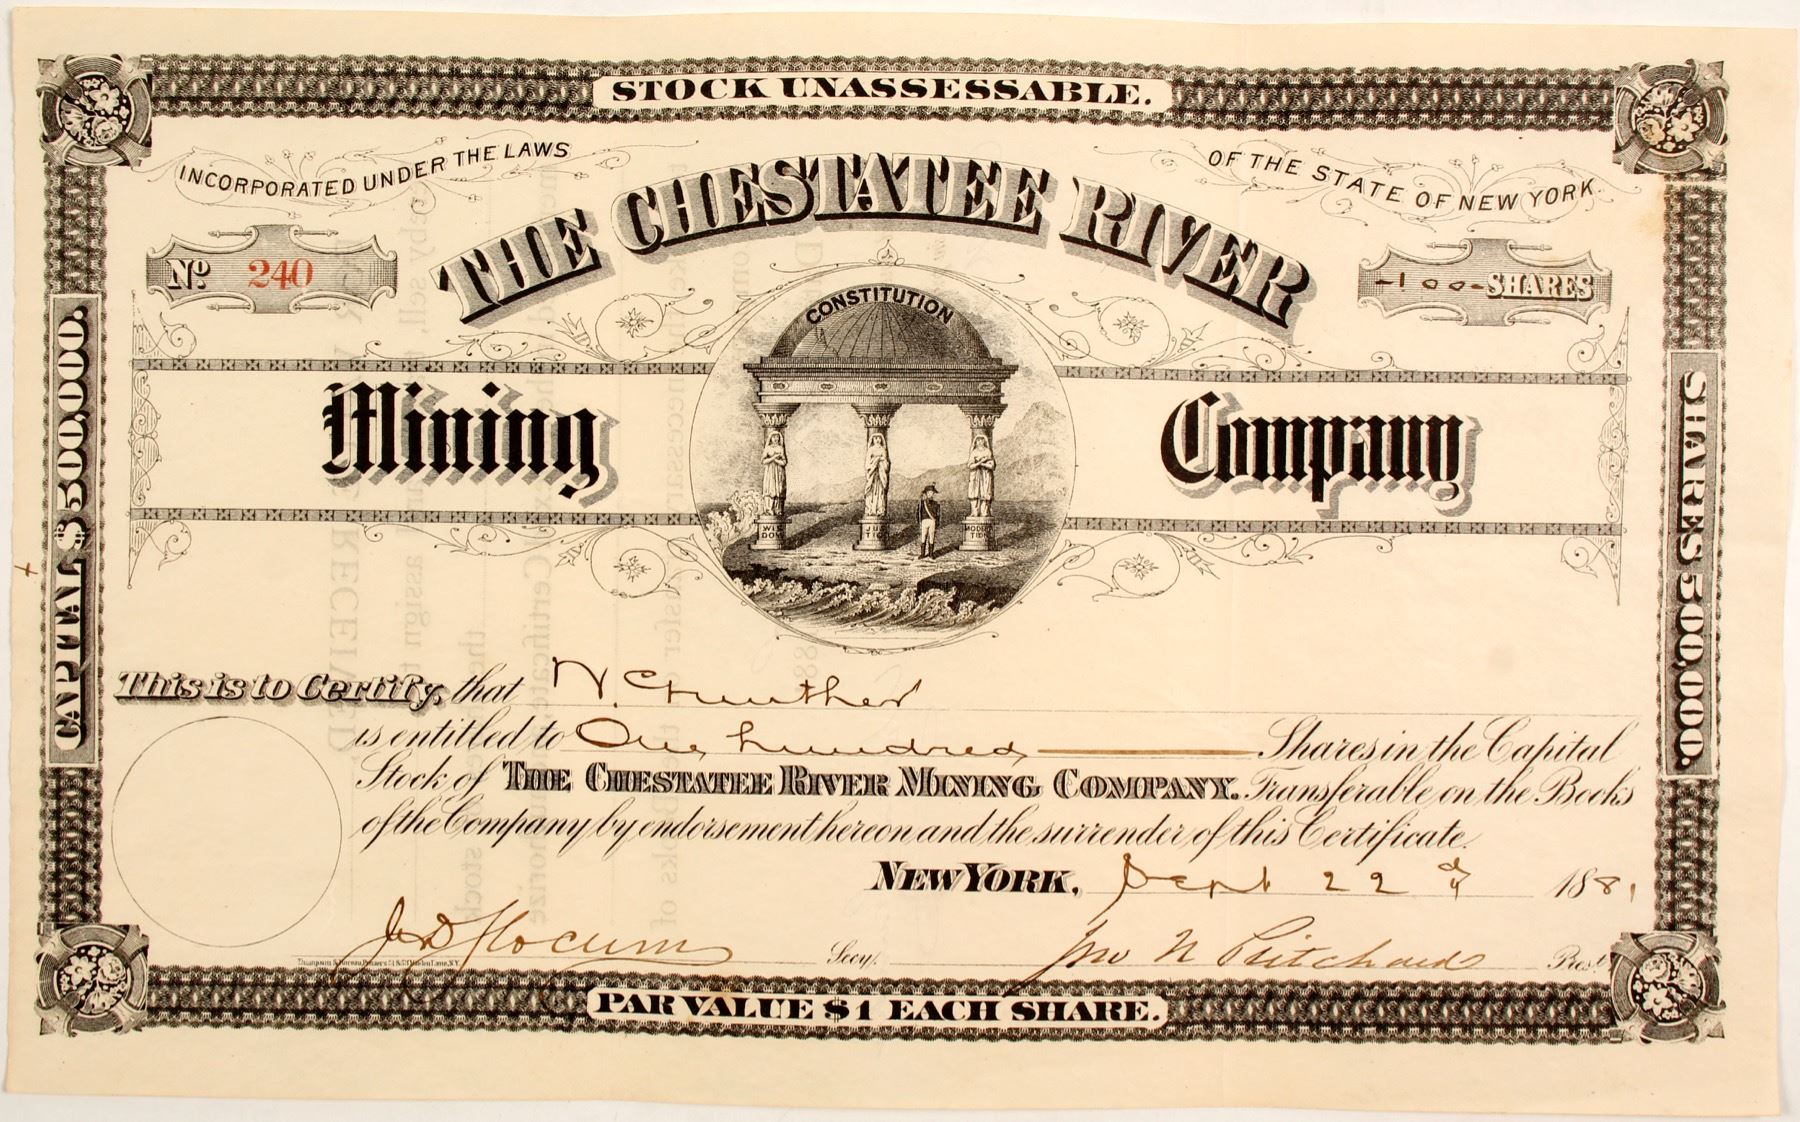 STOCK UNASSESSABLE.
INCORPORATED UNDER THE LAWS
OF THE STATE OF NEW YORK.
No. 240
-100- SHARES
THE CHESTATEE RIVER
Mining Company
CONSTITUTION
WIS DOM
JUS TICE
MODERA TION
CAPITAL $500,000.
SHARES 500,000.
This is to Certify, that N. Gunther
is entitled to One hundred Shares in the Capital
Stock of THE CHESTATEE RIVER MINING COMPANY. Transferable on the Books
of the Company by endorsement hereon and the surrender of this Certificate.
NEW YORK, Sept 22d 1881
J. D. Slocum Secy. Jno N Pritchard Prest.
PAR VALUE $1 EACH SHARE.